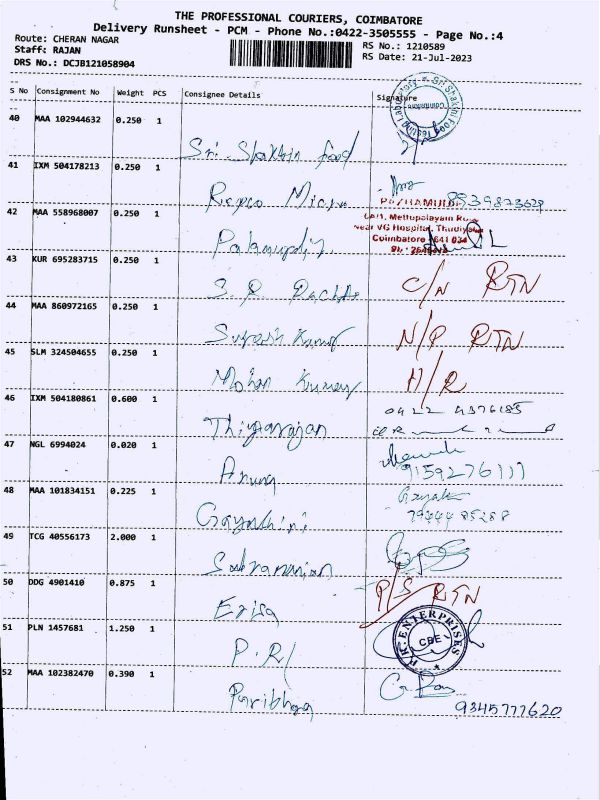 THE PROFESSIONAL COURIERS, COIMBATORE
Delivery Runsheet - PCM - Phone No.:0422-3505555 - Page No.:4
Route: CHERAN NAGAR
RS No.: 1210589
Staff: RAJAN
RS Date: 21-Jul-2023
DRS No.: DCJB121058904
S No Consignment No Weight PCS Consignee Details Signature
40 MAA 102944632 0.250 1
Sri Shakthi Food
41 IXM 504178213 0.250 1
Repco Micro
8539873629
42 MAA 558968007 0.250 1
Mettupalayam
Near VG Hospital, Thudiyalur
Coimbatore 641 034
43 KUR 695283715 0.250 1
S. R
C/N RTN
44 MAA 860972165 0.250 1
Suresh Kumar
N/P RTN
45 SLM 324504655 0.250 1
Mohan Kumar
H/R
46 IXM 504180861 0.600 1
0422 4376185
Thiyagarajan
47 NGL 6994024 0.020 1
9159276111
Arung
48 MAA 101834151 0.225 1
Gayathri
79444 85288
Gayathini
49 TCG 40556173 2.000 1
Subramanian
50 DDG 4901410 0.875 1
P/S RTN
Erisa
51 PLN 1457681 1.250 1
ENTERPRISES
CBE
P.R/
52 MAA 102382470 0.390 1
Paribhag
9345777620